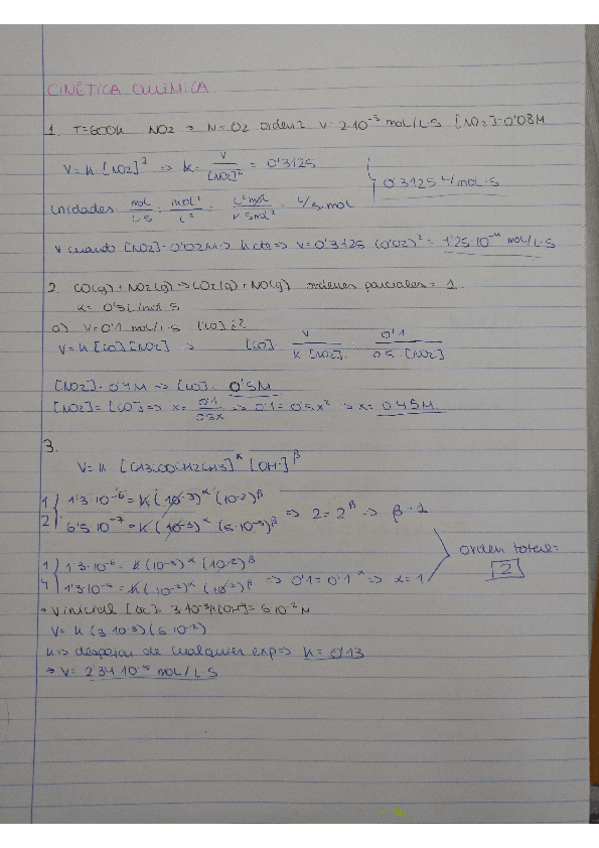 CINÉTICA QUÍMICA
1. T=600K NO2 → N=O2 Orden 2 V=2·10⁻³ mol/L·S [NO2]=0'08M
V=K[NO2]² ⇒ K= V/[NO2]² = 0'3125
0'3125 L/mol·S
Unidades: L/s·mol
V cuando [NO2]=0'02M ⇒ K cte ⇒ V=0'3125 (0'02)² = 1'25·10⁻⁴ mol/L·S
2. CO(g)+NO2(g)→CO2(g)+NO(g) ordenes parciales=1.
K= 0'5L/mol·S
a) V=0'1 mol/L·S [CO]¿?
V=K[CO][NO2] ⇒ [CO]= V/K[NO2] = 0'1/0'5·[NO2]
[NO2]=0'4M ⇒ [CO]= 0'5M
[NO2]=[CO] ⇒ x= 0'1/0'5x ⇒ 0'1=0'5x² ⇒ x= 0'45M.
3.
V=K·[CH3COOCH2CH3]^α [OH-]^β
1 1'3·10⁻⁶ = K(10⁻³)^α (10⁻²)^β
2 6'5·10⁻⁷ = K(10⁻³)^α (5·10⁻³)^β ⇒ 2=2^β ⇒ β=1
1 1'3·10⁻⁶ = K(10⁻³)^α (10⁻²)^β
4 1'3·10⁻⁵ = K(10⁻²)^α (10⁻²)^β ⇒ 0'1=0'1^α ⇒ α=1
orden total=
2
V inicial 3·10⁻³M [OH]=6·10⁻²M
V= K(3·10⁻³)(6·10⁻²)
K ⇒ despejar de cualquier exp ⇒ K=0'13
→ V= 2'34·10⁻⁵ mol/L·S